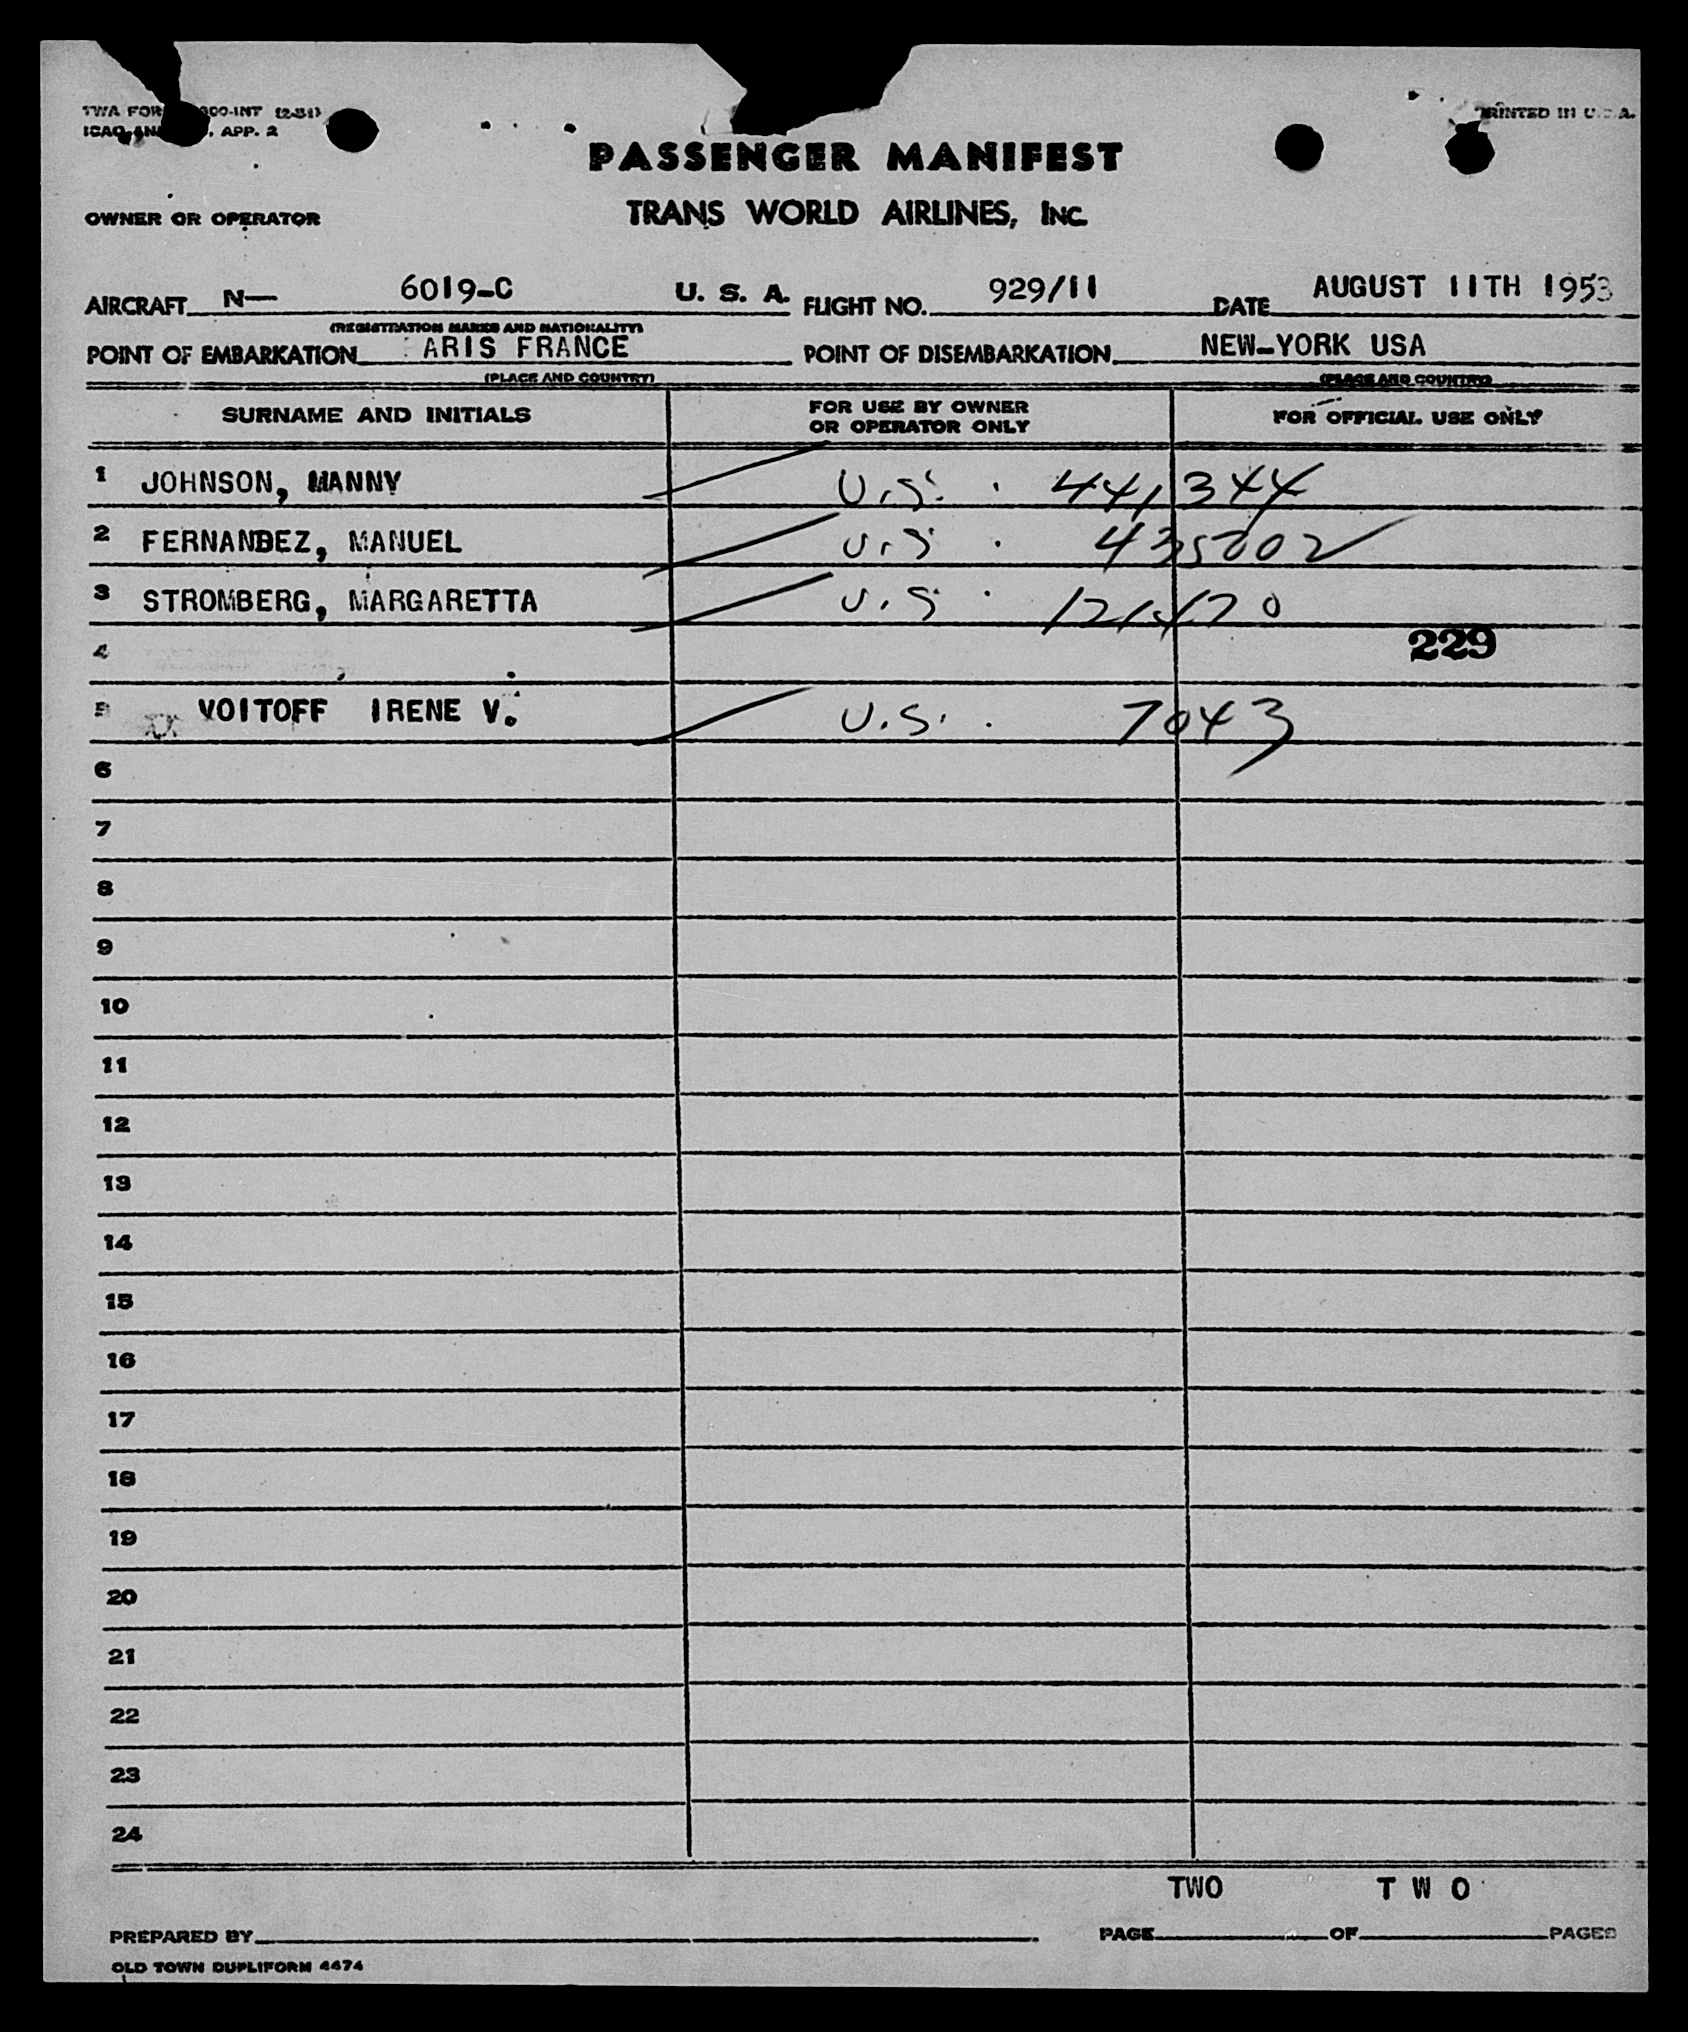 TWA FORM 300-INT (2-51)
ICAO ANNEX, APP. 2
PRINTED IN U.S.A.
PASSENGER MANIFEST
TRANS WORLD AIRLINES, INC.
OWNER OR OPERATOR
AIRCRAFT N— 6019-C U. S. A. FLIGHT NO. 929/11 DATE AUGUST 11TH 1953
(REGISTRATION MARKS AND NATIONALITY)
POINT OF EMBARKATION ARIS FRANCE POINT OF DISEMBARKATION NEW-YORK USA
(PLACE AND COUNTRY) (PLACE AND COUNTRY)
SURNAME AND INITIALS FOR USE BY OWNER OR OPERATOR ONLY FOR OFFICIAL USE ONLY
1 JOHNSON, MANNY U.S. 441344
2 FERNANDEZ, MANUEL U.S. 435002
3 STROMBERG, MARGARETTA U.S.
4 229
5 VOITOFF IRENE V. U.S. 7043
6
7
8
9
10
11
12
13
14
15
16
17
18
19
20
21
22
23
24
TWO T W O
PREPARED BY PAGE OF PAGES
OLD TOWN DUPLIFORM 4474